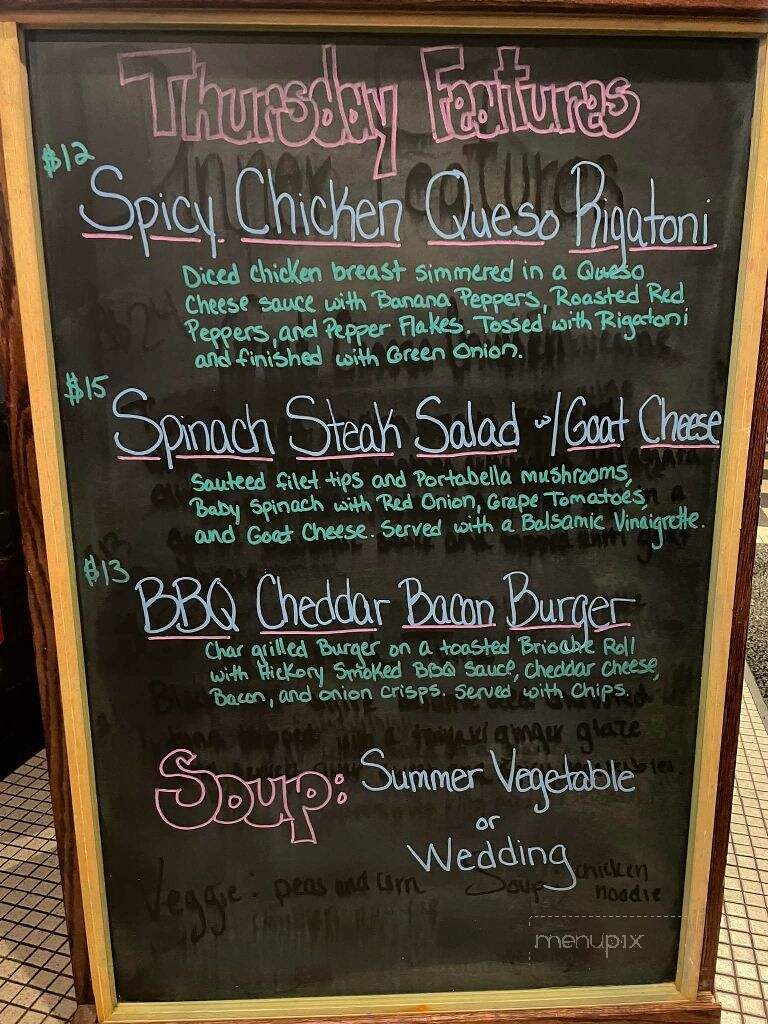 Thursday Features
Dinner Features
$12
Spicy Chicken Queso Rigatoni
Diced chicken breast simmered in a Queso
Cheese sauce with Banana Peppers, Roasted Red
Peppers, and Pepper Flakes. Tossed with Rigatoni
and finished with Green Onion.
$24
$15
Spinach Steak Salad w/Goat Cheese
Sauteed filet tips and Portabella mushrooms,
Baby Spinach with Red Onion, Grape Tomatoes,
and Goat Cheese. Served with a Balsamic Vinaigrette.
$13
BBQ Cheddar Bacon Burger
Char grilled Burger on a toasted Brioche Roll
with Hickory Smoked BBQ Sauce, Cheddar cheese,
Bacon, and onion crisps. Served with Chips.
ginger glaze
Soup: Summer Vegetable
or
Wedding
Veggie: peas and corn Soup: chicken
noodle
menupix